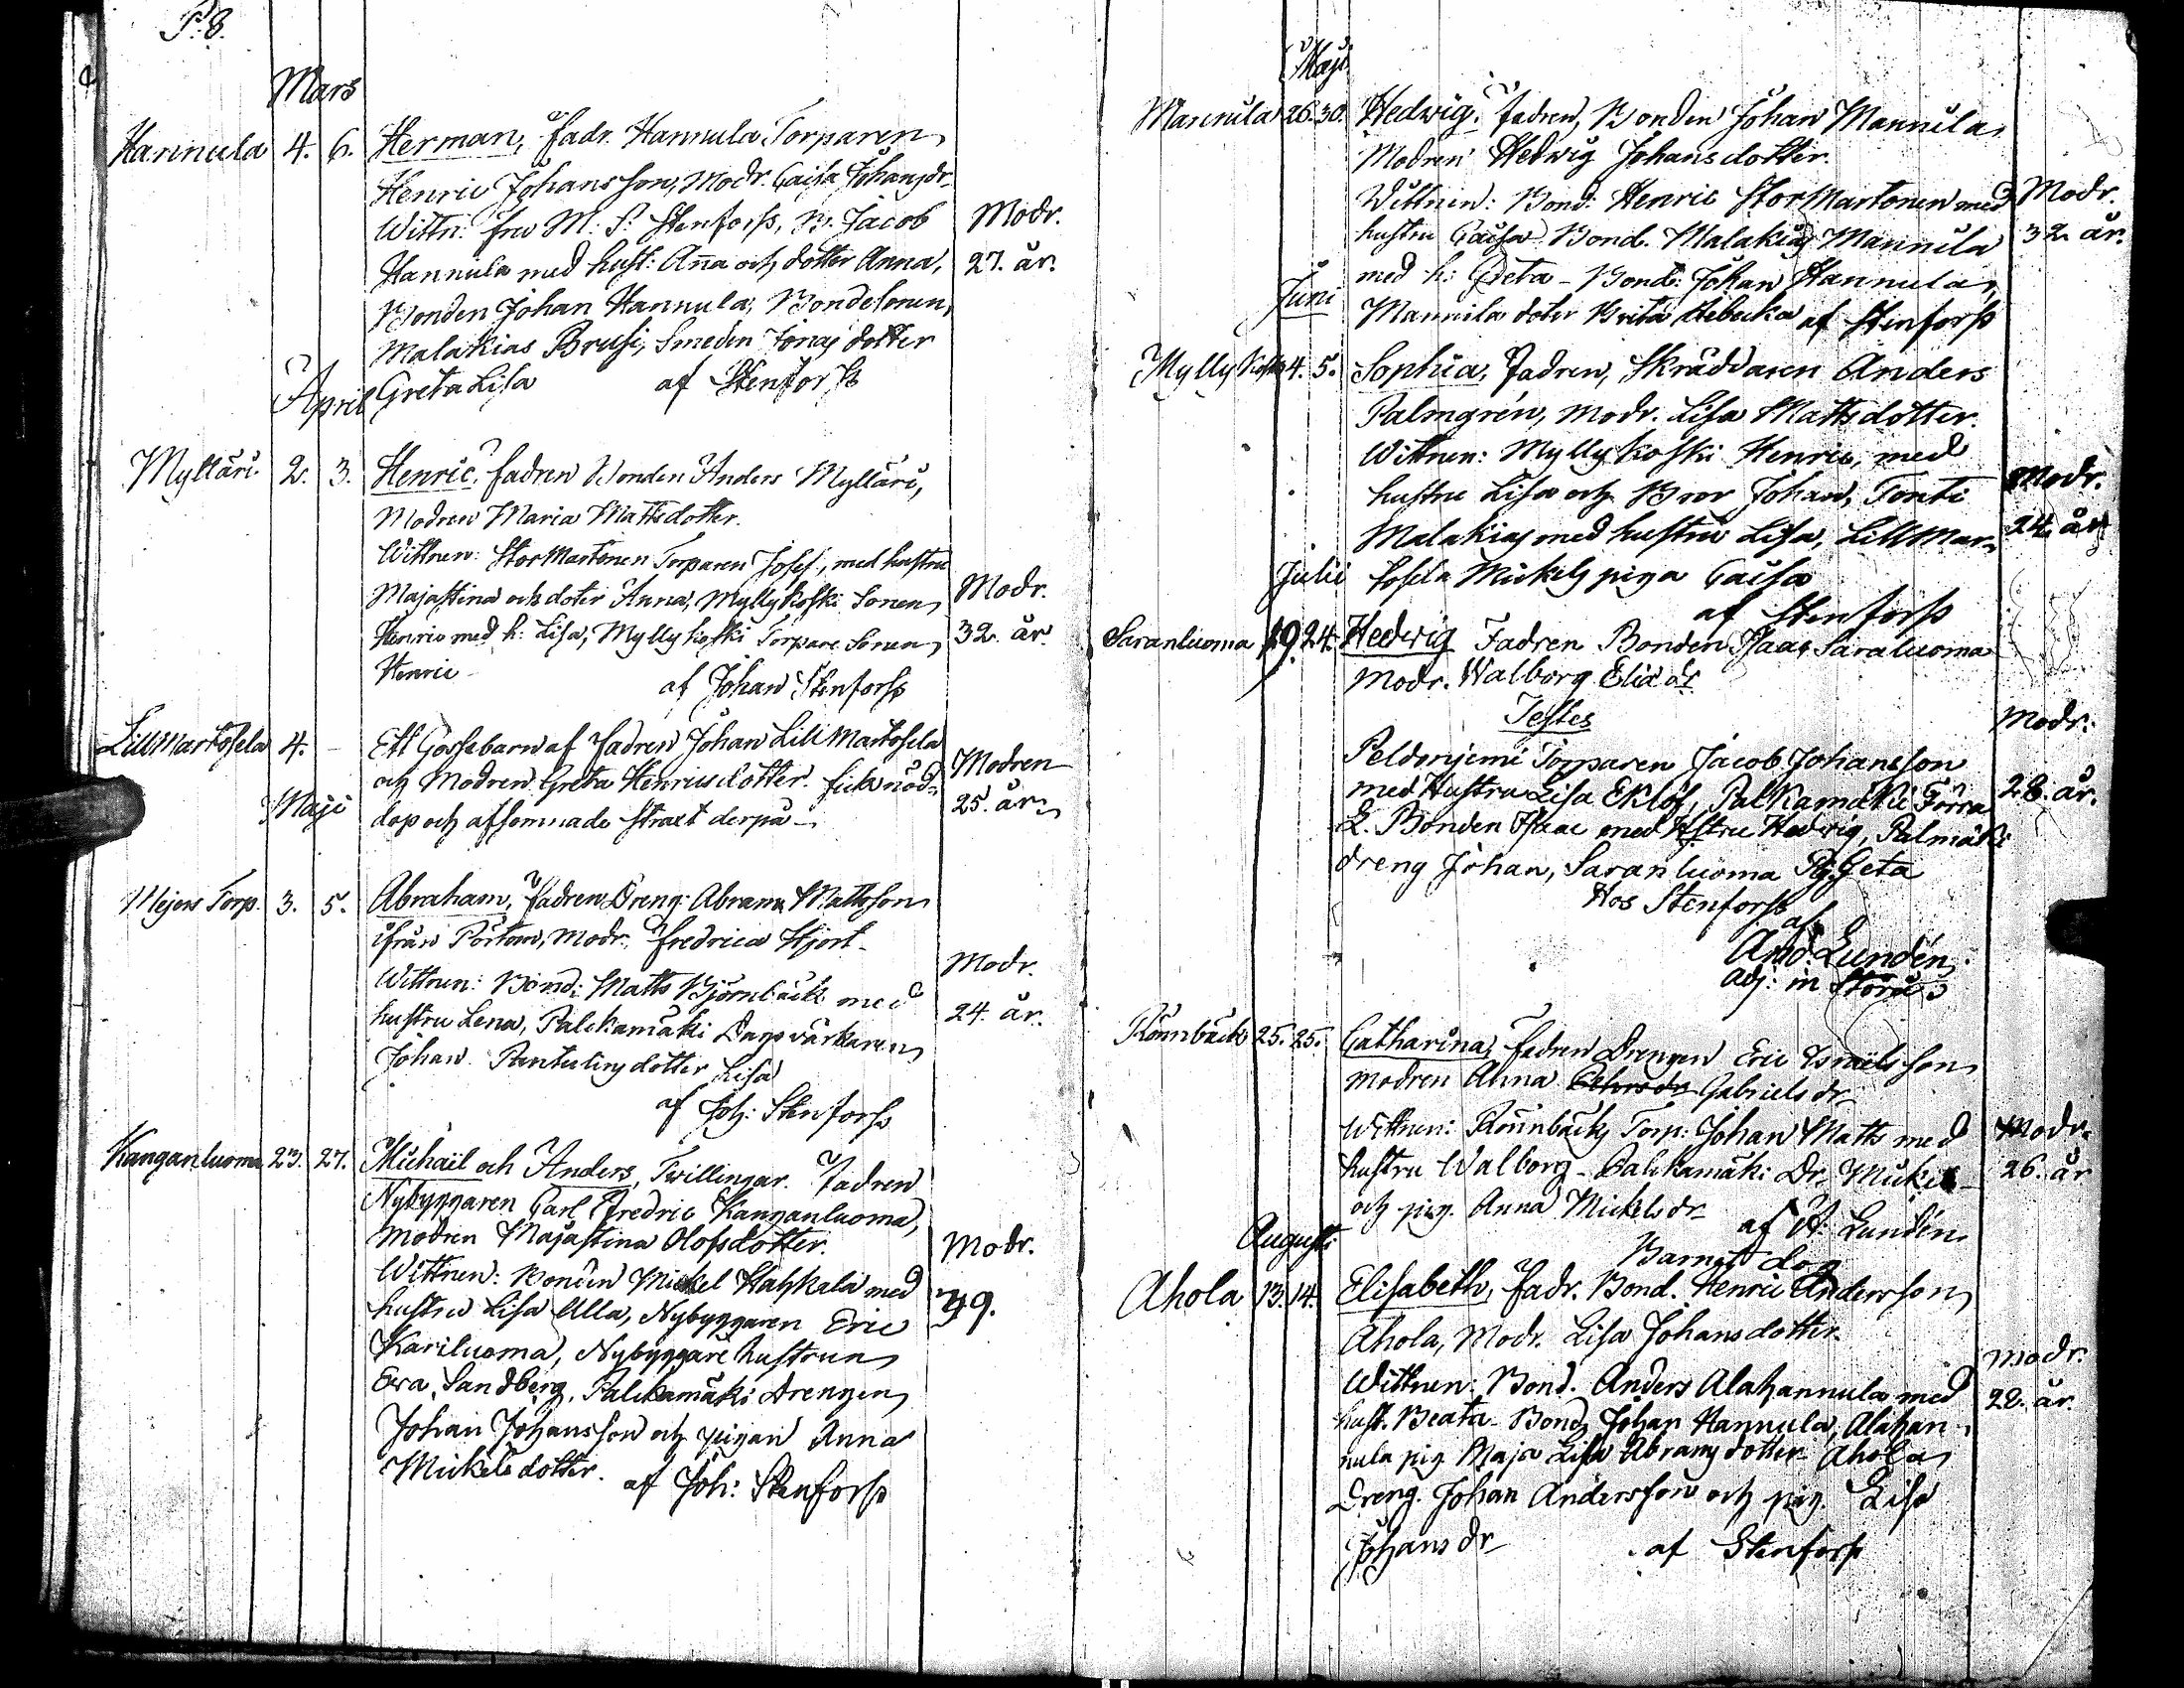 P. 8.
Mars
Hannula 4. 6. Herman, fadr. Hannula Torparen
Henric Johansson, Modr. Caisa Johansdr
Wittn: fru M. S. Stenforss, B. Jacob Modr.
Hannula med hust: Anna och dotter Anna, 27. år.
Bonden Johan Hannula, Bondesonen
Malakias Brusi, Smeden Jonas dotter
Greta Lisa af Stenforss
April
Mylläri 2. 3. Henric, fadren Bonden Anders Mylläri,
Modren Maria Mattsdotter.
Wittnen: StorMartonen Torparen Josef, med hustru
Majastina och doter Anna, Myllykoski Sonen Modr.
Henric med h: Lisa, Myllykoski Torpare Sonen 32. år.
Henric af Johan Stenforss
Lillmartosela 4. - Ett Gossebarn af fadren Johan Lill Martosela
och Modren Greta Henricsdotter. fick nöd- Modren
dop och afsomnade straxt derpå 25. år.
Maji
Mejers Torp. 3. 5. Abraham, fadren Dreng: Abram Mattsson
ifrån Pörtom, Modr. Fredrica Hjort Modr.
Wittnen: Bond: Matts Björnbäck med 24. år.
hustru Lena, Palckamäki Dagsvärkaren
Johan Pantulins dotter Lisa
af Joh: Stenforss
Kanganluoma 23. 27. Michaïl och Anders, Twillingar. Fadren
Nybyggaren Carl Fredric Kanganluoma,
Modren Majastina Olofsdotter. Modr.
Wittnen: Bonden Mickel Hahkala med 49.
hustru Lisa Ulla, Nybyggaren Eric
Kariluoma, Nybyggare hustrun
Eva Sandberg, Palckamäki Drengen
Johan Johansson och pigan Anna
Mickelsdotter. af Joh: Stenforss
Maji
Mannula 26. 30. Hedwig. fadren, Bonden Johan Mannula
Modren Hedwig Johansdotter.
Wittnen: Bond: Henric StorMartonen med Modr.
hustru Caisa Bond. Malakias Mannila 32. år.
med h: Greta - Bond: Johan Hannula,
Mannila doter Brita Rebecka af Stenforss
Juni
Myllykoski 4. 5. Sophia, Fadren, Skräddaren Anders
Palmgrén, Modr. Lisa Mattsdotter.
Wittnen: Myllykoski Henric, med
hustru Lisa och Bror Johan, Tonti Modr.
Malakias med hustru Lisa, LillMar- 24. år
tosela Mickels piga Caisa
af Stenforss
Julii
Saranluoma 19. 24. Hedwig Fadren Bonden Isaac Saraluoma
Modr. Walborg Elia dr
Testes Modr.
Peldonjemi Torparen Jacob Johansson
med Hustru Lisa Eklöf, Palkamäki Förra 28. år.
L. Bonden Isaac med Hstru Hedvig, Palmäki
dreng Johan, Saranluoma Pig. Greta
Hos Stenforss
af
And. Lundén
Adj: in Storå
Rönnbäck 25. 25. Catharina, fadren Drengen Eric Israëlsson
modren Anna Gabrielsdr
Wittnen: Rönnbäcks Torp: Johan Matts med Modr.
hustru Walborg - Palckamäki Dr. Mickel 26. år
och pig. Anna Mickelsdr af A. Lundén
Augusti
Barnet dog
Ahola 13. 14. Elisabeth, fadr. Bond. Henric Andersson
Ahola, Modr. Lisa Johansdotter. Modr.
Wittnen: Bond. Anders Alahannula med 28. år.
hust. Beata - Bond. Johan Hannula, Alahan-
nula pig Maja Lisa Abramsdotter - Ahola
Dreng. Johan Andersson och pig. Lisa
Johansdr af Stenforss